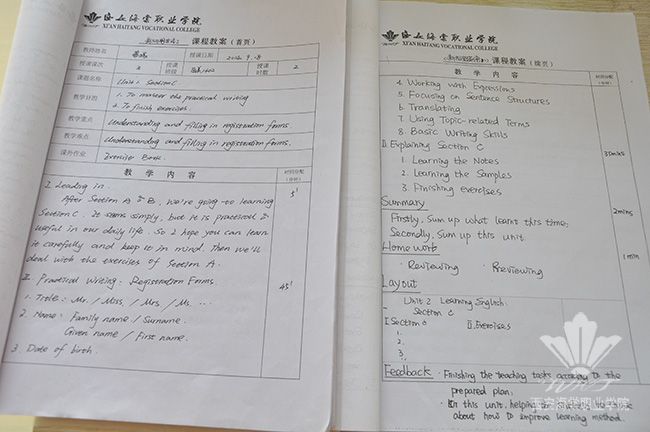 西安海棠职业学院
XI'AN HAITANG VOCATIONAL COLLEGE
课程教案（首页）
教师姓名
授课日期
2016. 9. 18
授课课次
2
授课班级
授课时数
2
课题名称
Unit 1 Section C
教学目的
1. To master the practical writing
2. To finish exercises.
教学重点
Understanding and filling in registration forms
教学难点
Understanding and filling in registration forms.
课外作业
Exercise Book.
教 学 内 容
时间分配
(分钟)
I. Leading in.
5'
After Section A & B, we're going to learning
Section C. It seems simply, but it is practical &
useful in our daily life. So I hope you can learn
it carefully and keep it in mind. Then we'll
deal with the exercises of Section A.
45'
II. Practical Writing: Registration Forms
1. Title: Mr. / Miss. / Mrs. / Ms. ...
2. Name: Family name / Surname.
Given name / First name.
3. Date of birth.
西安海棠职业学院
XI'AN HAITANG VOCATIONAL COLLEGE
课程教案（续页）
教 学 内 容
时间分配
(分钟)
4. Working with Expressions
5. Focusing on Sentence Structures
6. Translating
7. Using Topic-related Terms
8. Basic Writing Skills
II. Explaining Section C
35mins
1. Learning the Notes
2. Learning the Samples
3. Finishing exercises
Summary
2mins
Firstly, sum up what learnt this time;
Secondly, sum up this unit
Home work
1min
· Reviewing · Previewing
Layout
Unit 2 Learning English:
Section C
I Section II. Exercises
1.
2.
3.
Feedback · Finishing the teaching tasks according to the
prepared plan;
· In this unit, helping
about how to improve learning method.
西安海棠职业学院